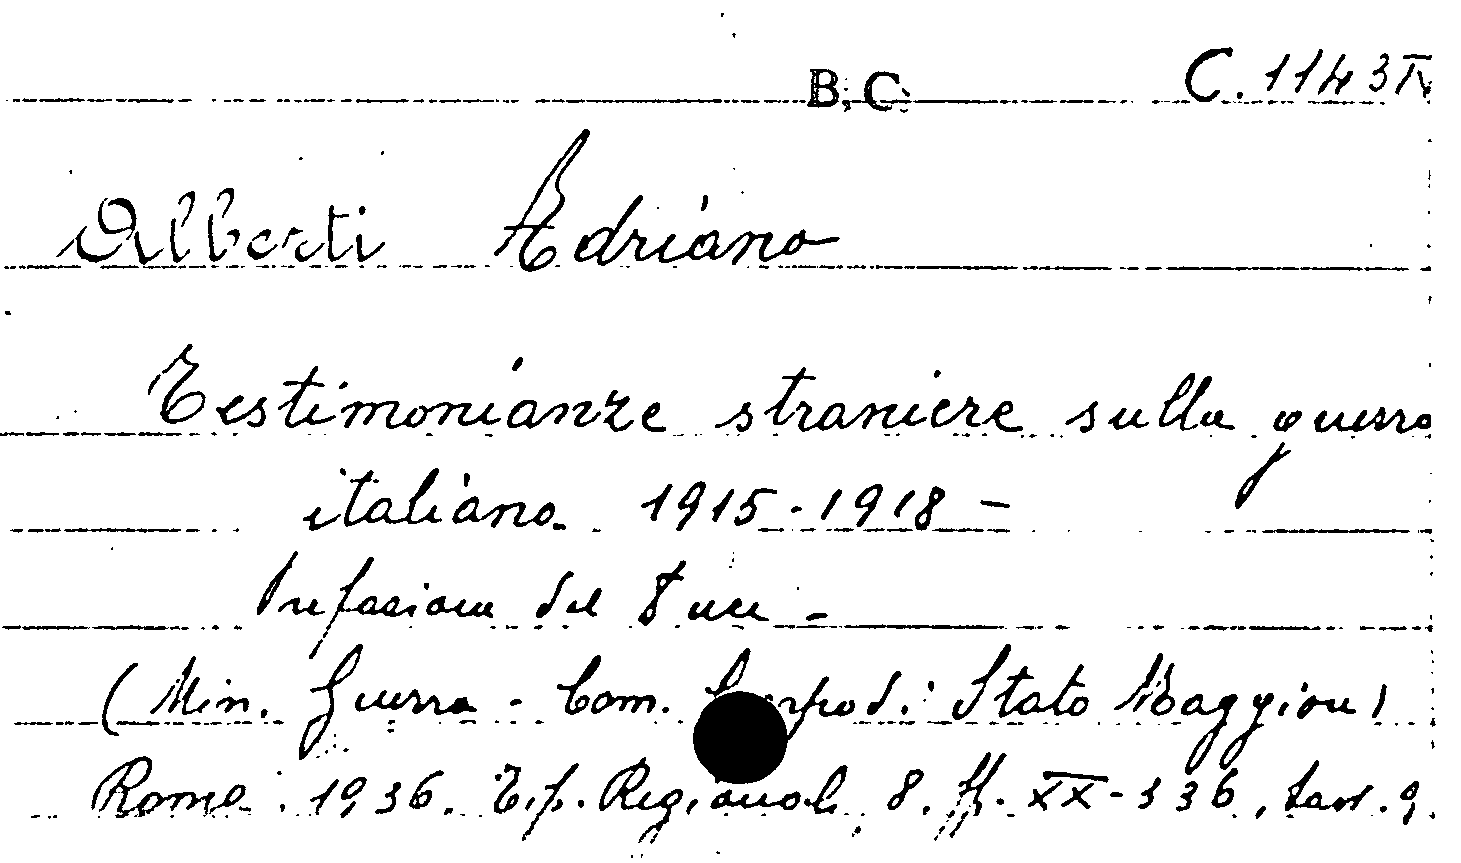 B. C. C. 1143 IV
Alberti Adriano
Testimonianze straniere sulla guerra
italiana 1915-1918 -
Prefazione del Duce -
(Min. Guerra - Com. Corpo di Stato Maggiore)
Roma. 1936. Tip. Regionale, 8. ff. XX-336, tav. 9.